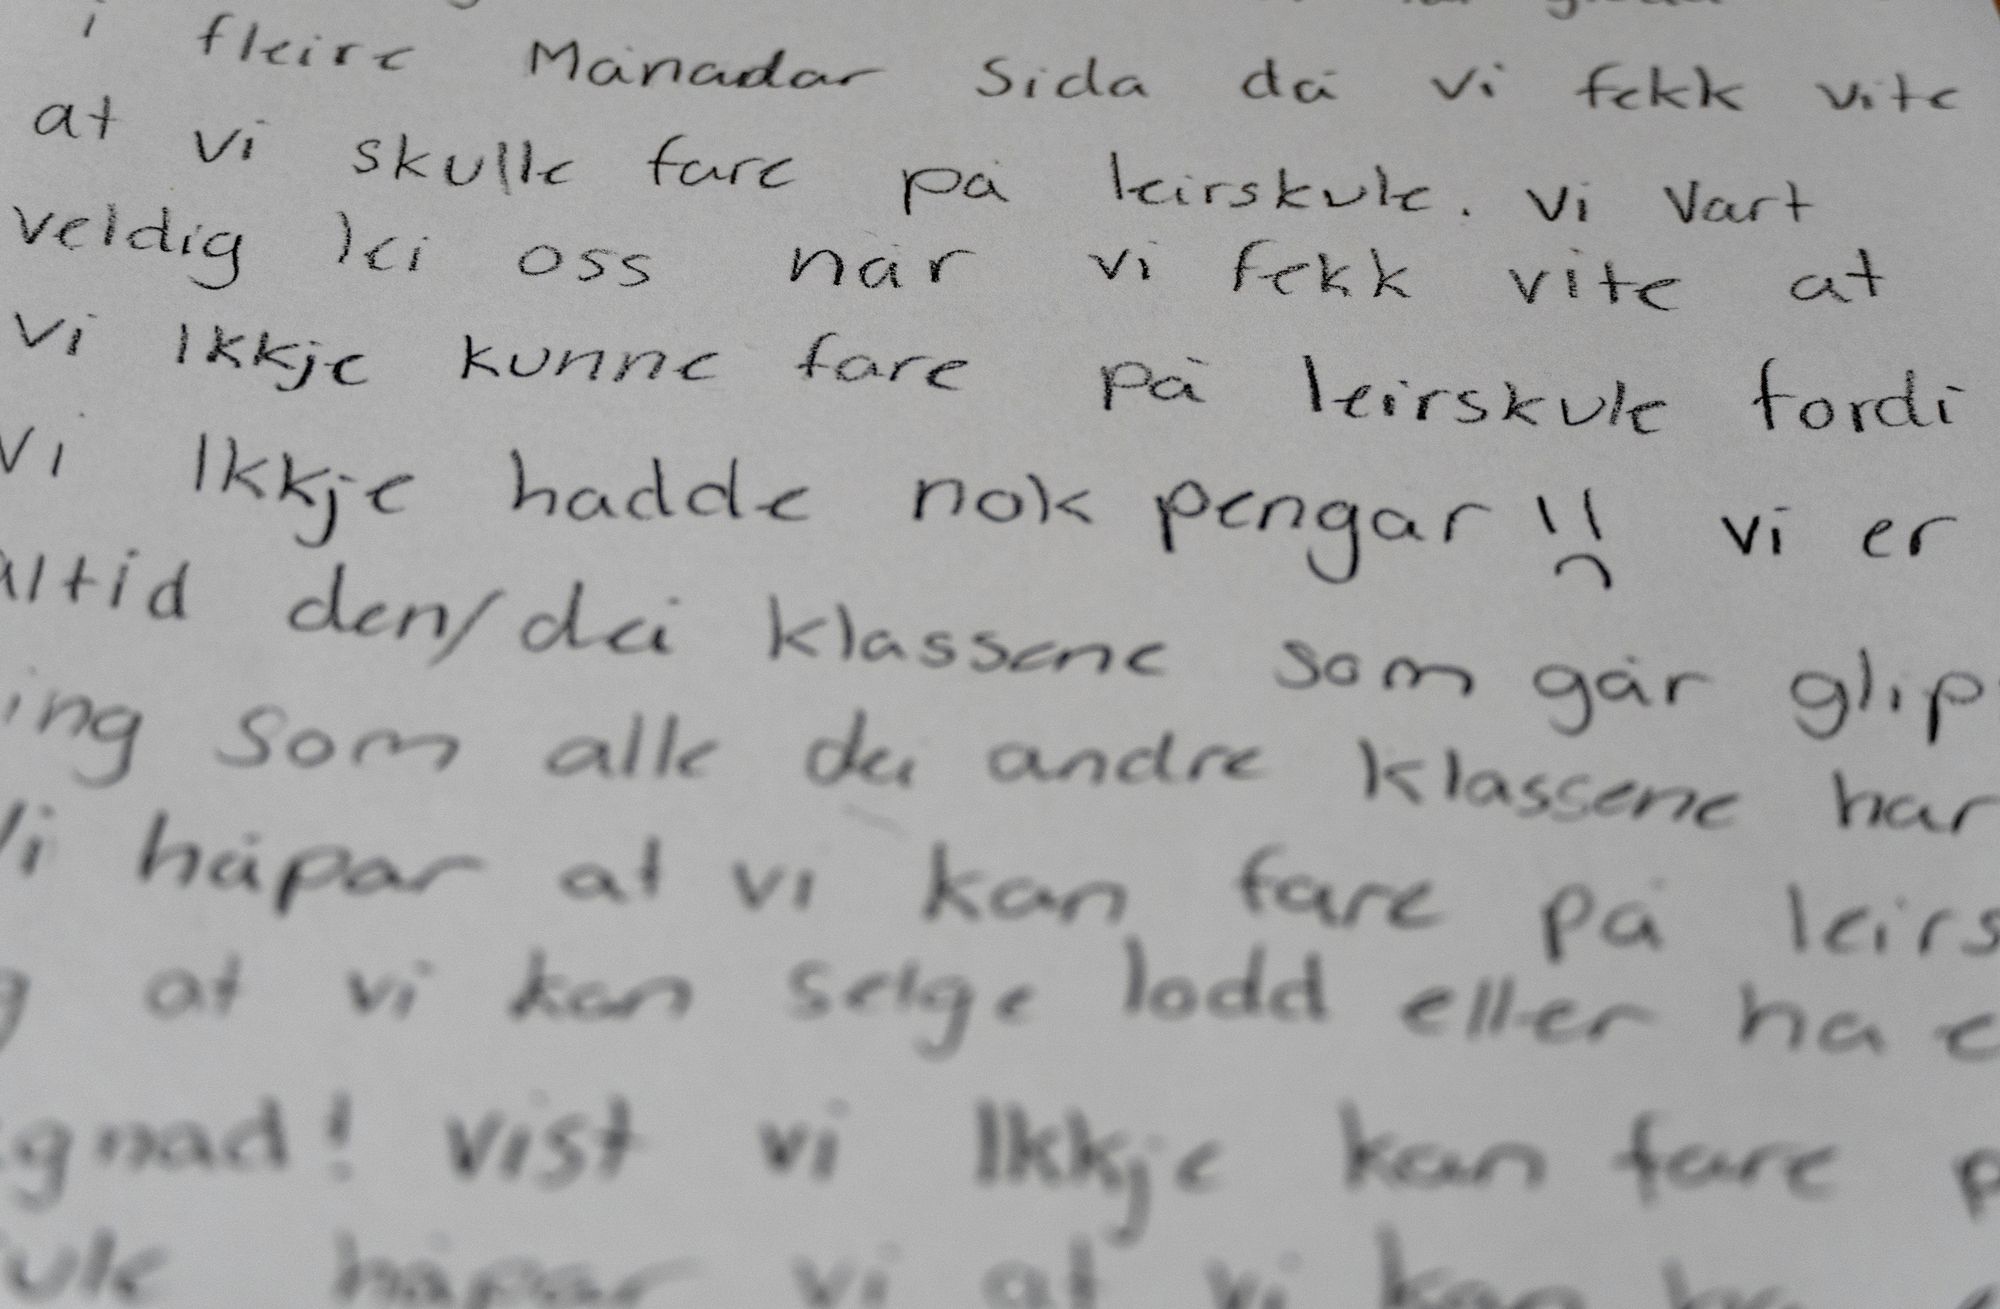 i fleire Månadar Sida då vi fekk vite
at vi skulle fare på leirskule. vi Vart
veldig lei oss når vi fekk vite at
vi Ikkje kunne fare på leirskule fordi
Vi Ikkje hadde nok pengar!! vi er
altid den/dei klassene som går glip
ing som alle dei andre klassene har
Vi håpar at vi kan fare på leirs
at vi kan selge lodd eller ha e
gnad! Vist vi Ikkje kan fare p
ule håpar vi at vi kan